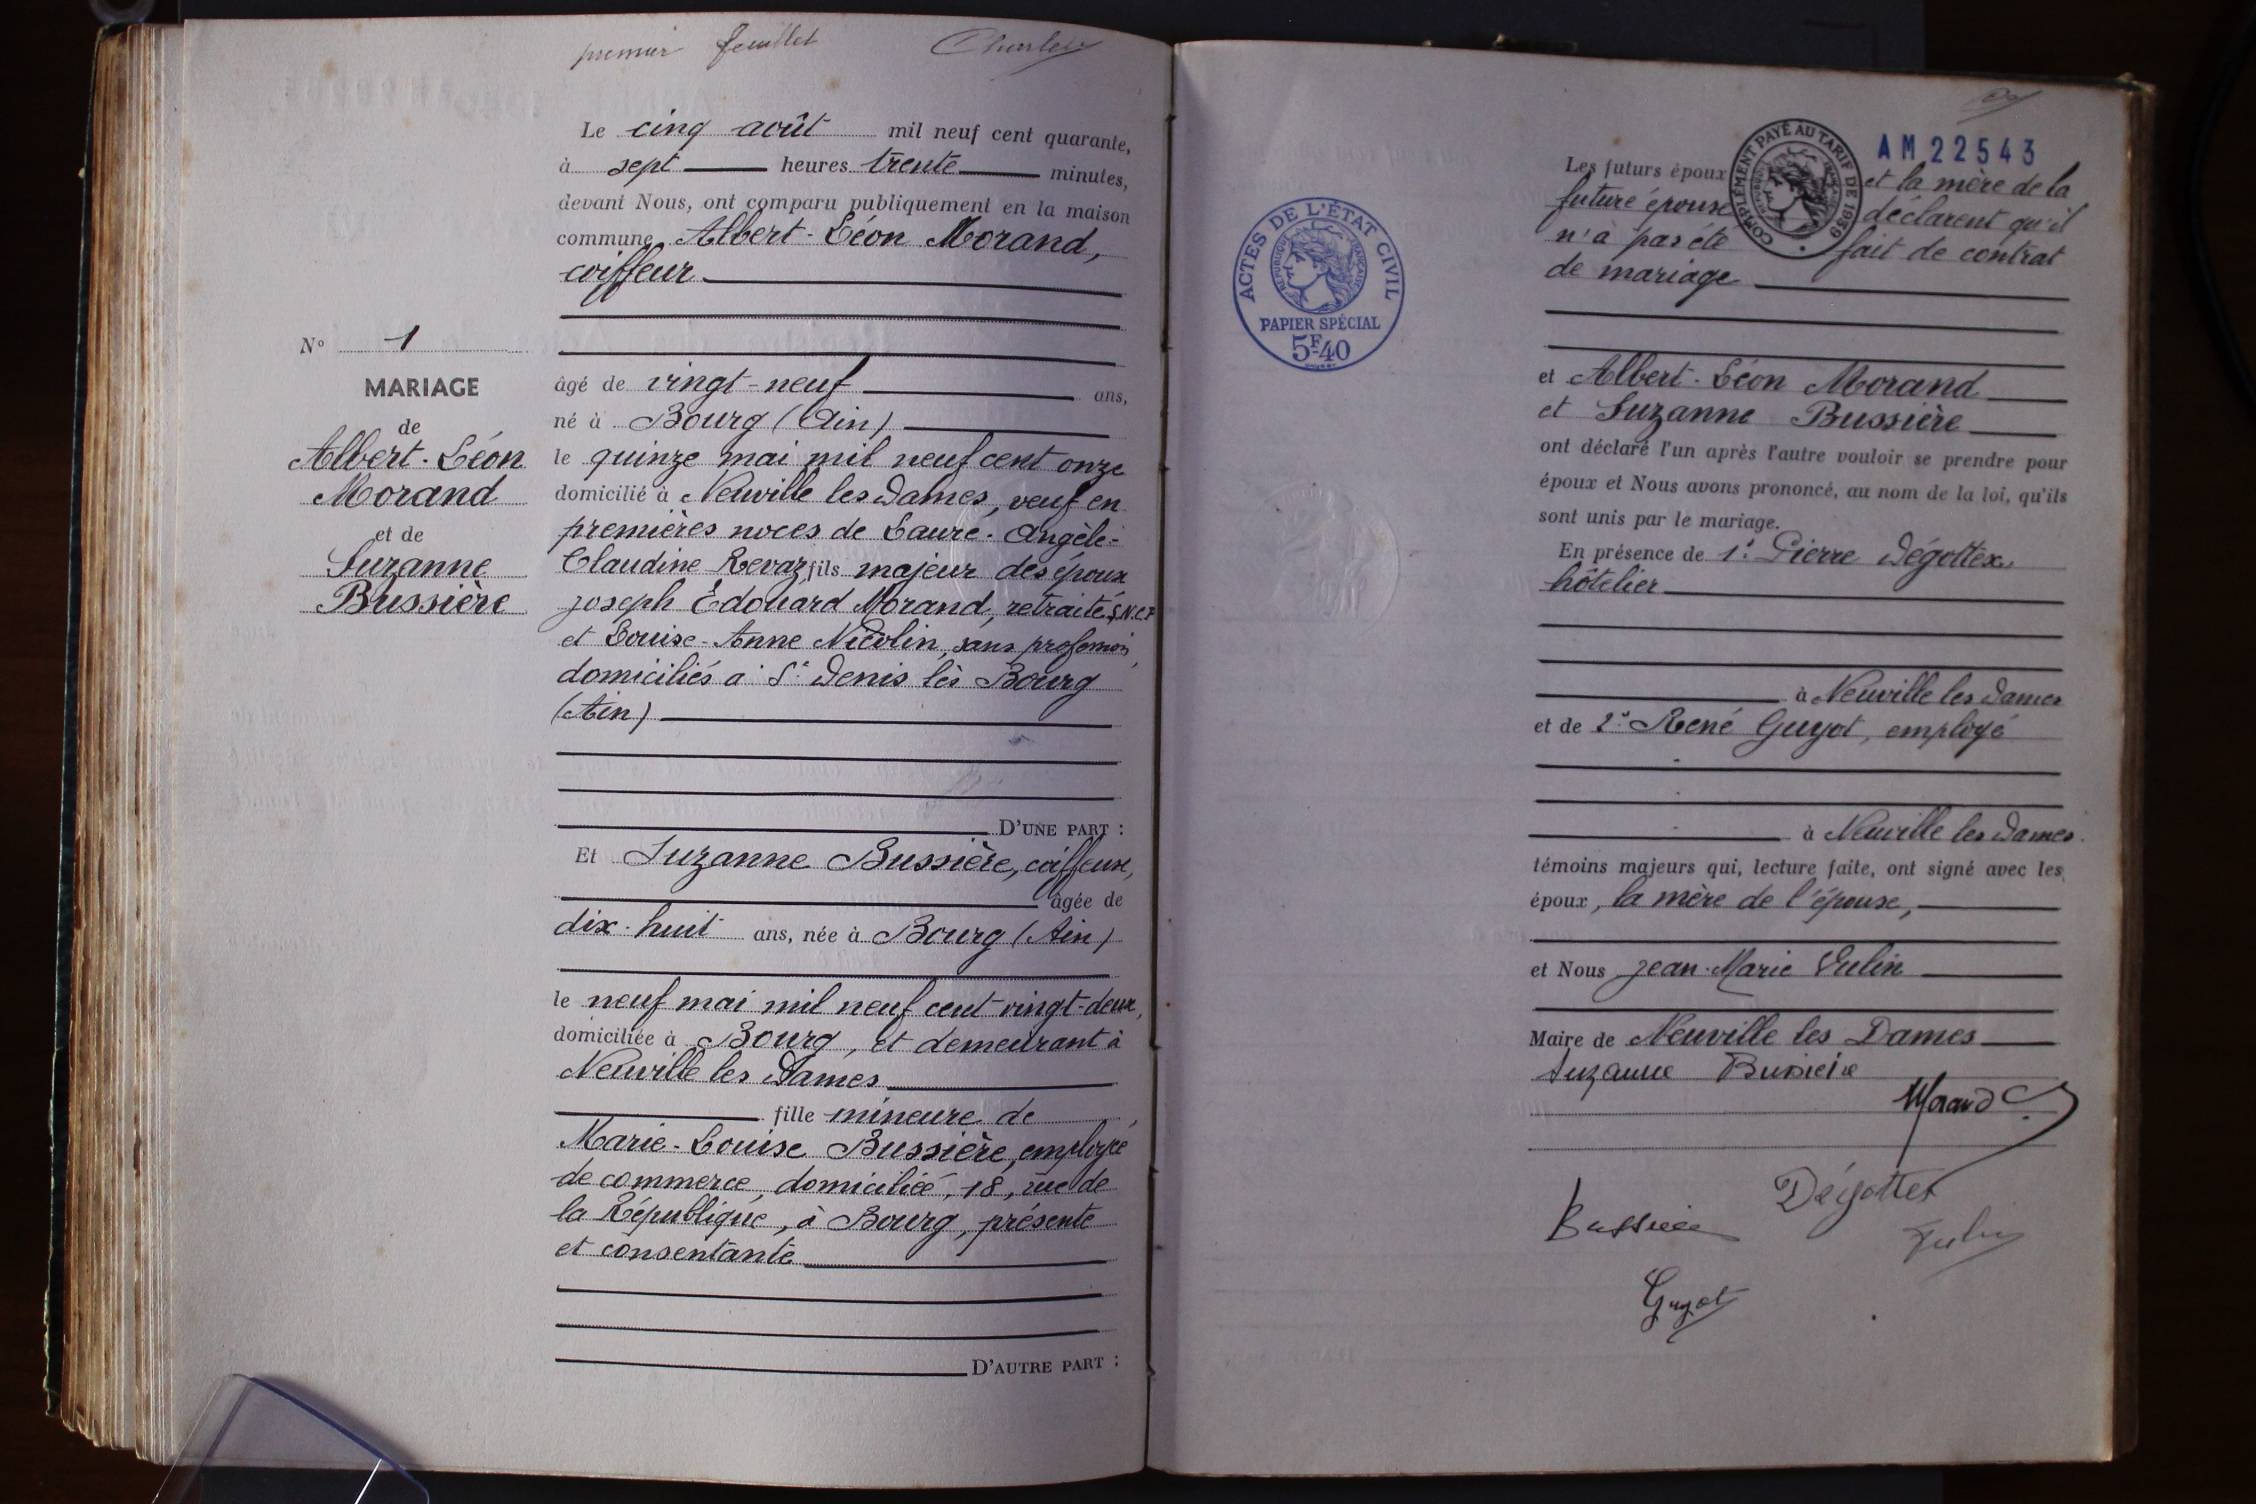 premier feuillet
Le cinq août mil neuf cent quarante,
à sept heures trente minutes,
devant Nous, ont comparu publiquement en la maison
commune Albert-Léon Morand,
coiffeur
N° 1
MARIAGE
de
Albert-Léon
Morand
et de
Suzanne
Bussière
âgé de vingt-neuf ans,
né à Bourg (Ain)
le quinze mai mil neuf cent onze
domicilié à Neuville les Dames, veuf en
premières noces de Laure-Angèle-
Claudine Revaz fils majeur des époux
Joseph Édouard Morand, retraité S.N.C.F
et Louise-Anne Nicolin, sans profession,
domiciliés à St Denis lès Bourg
(Ain)
D'UNE PART :
Et Suzanne Bussière, coiffeuse,
âgée de
dix-huit ans, née à Bourg (Ain)
le neuf mai mil neuf cent vingt-deux,
domiciliée à Bourg, et demeurant à
Neuville les Dames
fille mineure de
Marie-Louise Bussière, employée
de commerce, domiciliée, 18, rue de
la République, à Bourg, présente
et consentante
D'AUTRE PART :
ACTES DE L'ÉTAT CIVIL
RÉPUBLIQUE FRANÇAISE
PAPIER SPÉCIAL
5F.40
COMPLÉMENT PAYÉ AU TARIF DE 1939
AM22543
Les futurs époux et la mère de la
future épouse déclarent qu'il
n'a pas été fait de contrat
de mariage
et Albert-Léon Morand
et Suzanne Bussière
ont déclaré l'un après l'autre vouloir se prendre pour
époux et Nous avons prononcé, au nom de la loi, qu'ils
sont unis par le mariage.
En présence de 1° Pierre Dégottex,
hôtelier
à Neuville les Dames
et de 2° René Guyot, employé
à Neuville les Dames.
témoins majeurs qui, lecture faite, ont signé avec les
époux, la mère de l'épouse,
et Nous Jean-Marie Vulin
Maire de Neuville les Dames
Suzanne Bussière
Morand
Dégottex
Bussière
Vulin
Guyot